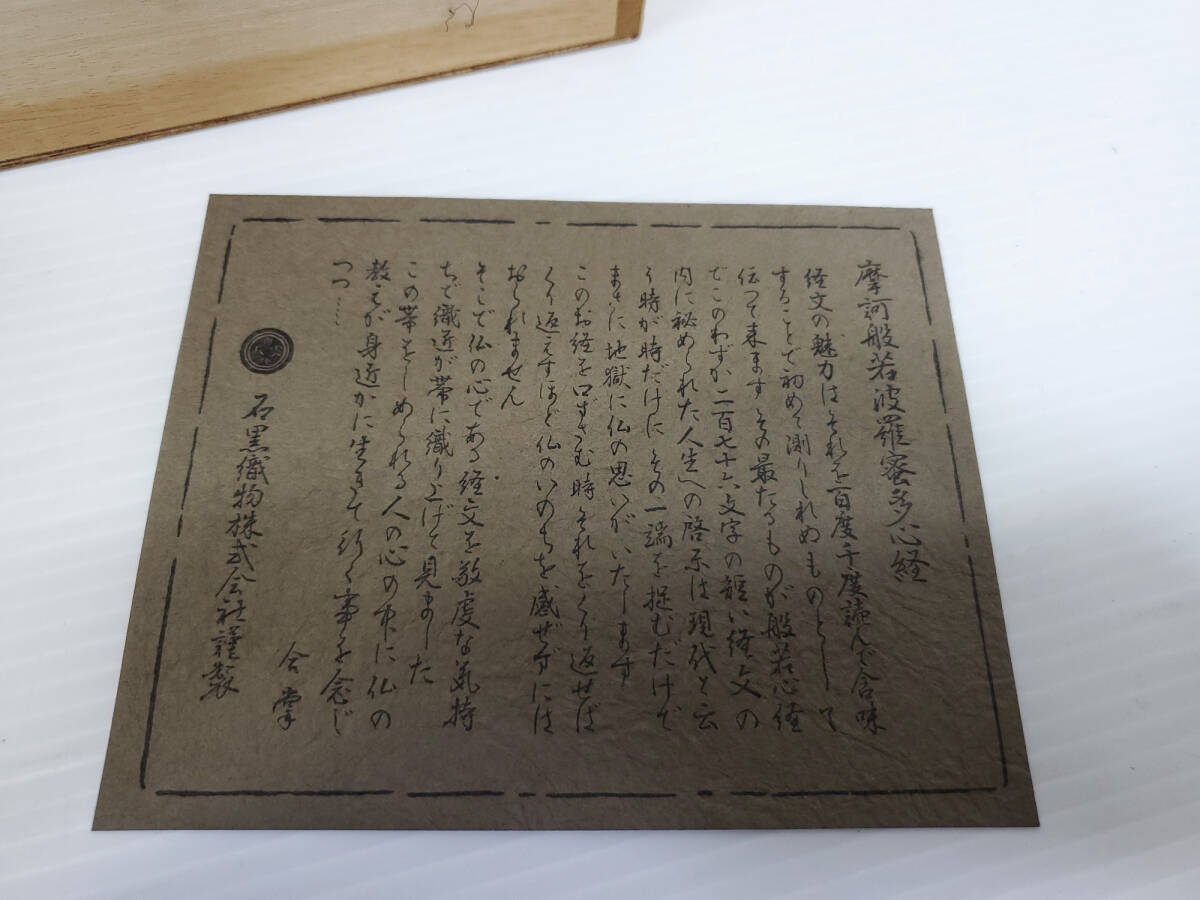 摩訶般若波羅蜜多心経
経文の魅力はそれを百度千度読んで含味
することで初めて測りしれぬものとして
伝って来ます その最たるものが般若心経
でこのわずか二百七十六文字の短い経文の
内に秘められた人生への啓示は現代と云
う時が時だけに その一端を捉むだけで
まさに地獄に仏の思いがいたします
このお経を口ずさむ時 それをくり返せば
くり返えすほど仏のいのちを、感ぜずには
おられません
そこで仏の心である経文を敬虔な気持
ちで織匠が帯に織り上げて見ました
この帯をしめられる人の心の中に仏の
教えが身近かに生きて行く事を念じ
つつ……
合掌
石黒織物株式会社謹製